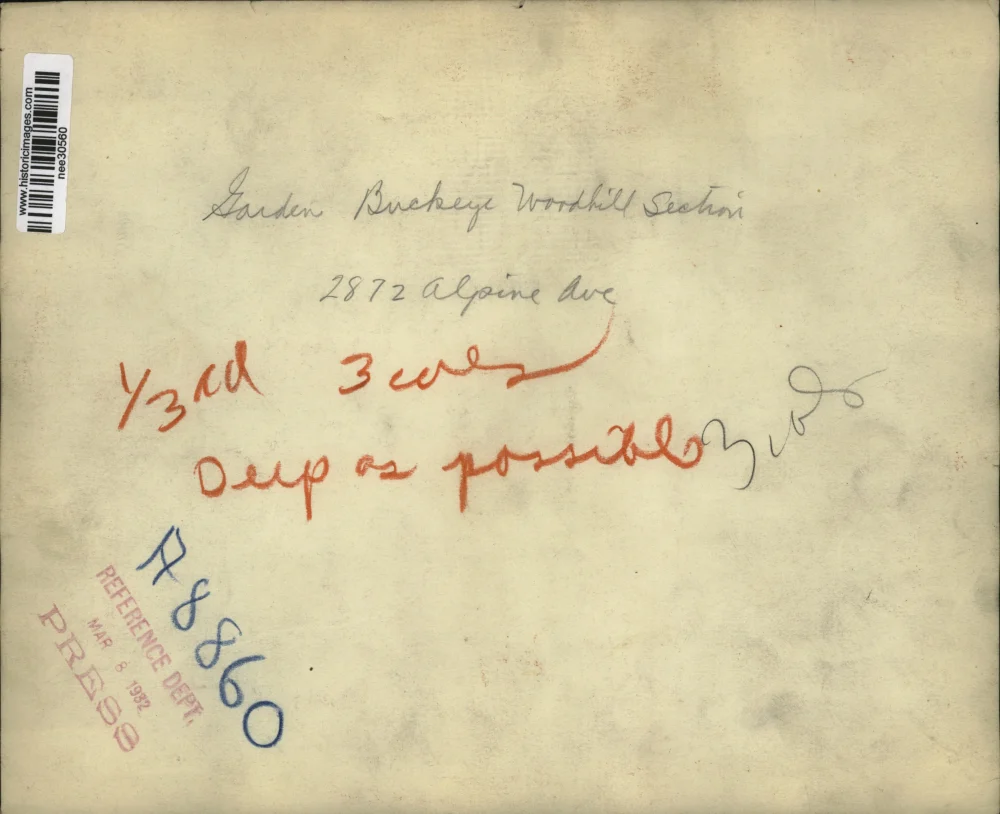 www.historicimages.com
nee30560
Garden Buckeye Woodhill Section
2872 Alpine Ave
1/3rd 3 cols
Deep as possible
A8860
REFERENCE DEPT.
MAR 8 1932
PRESS